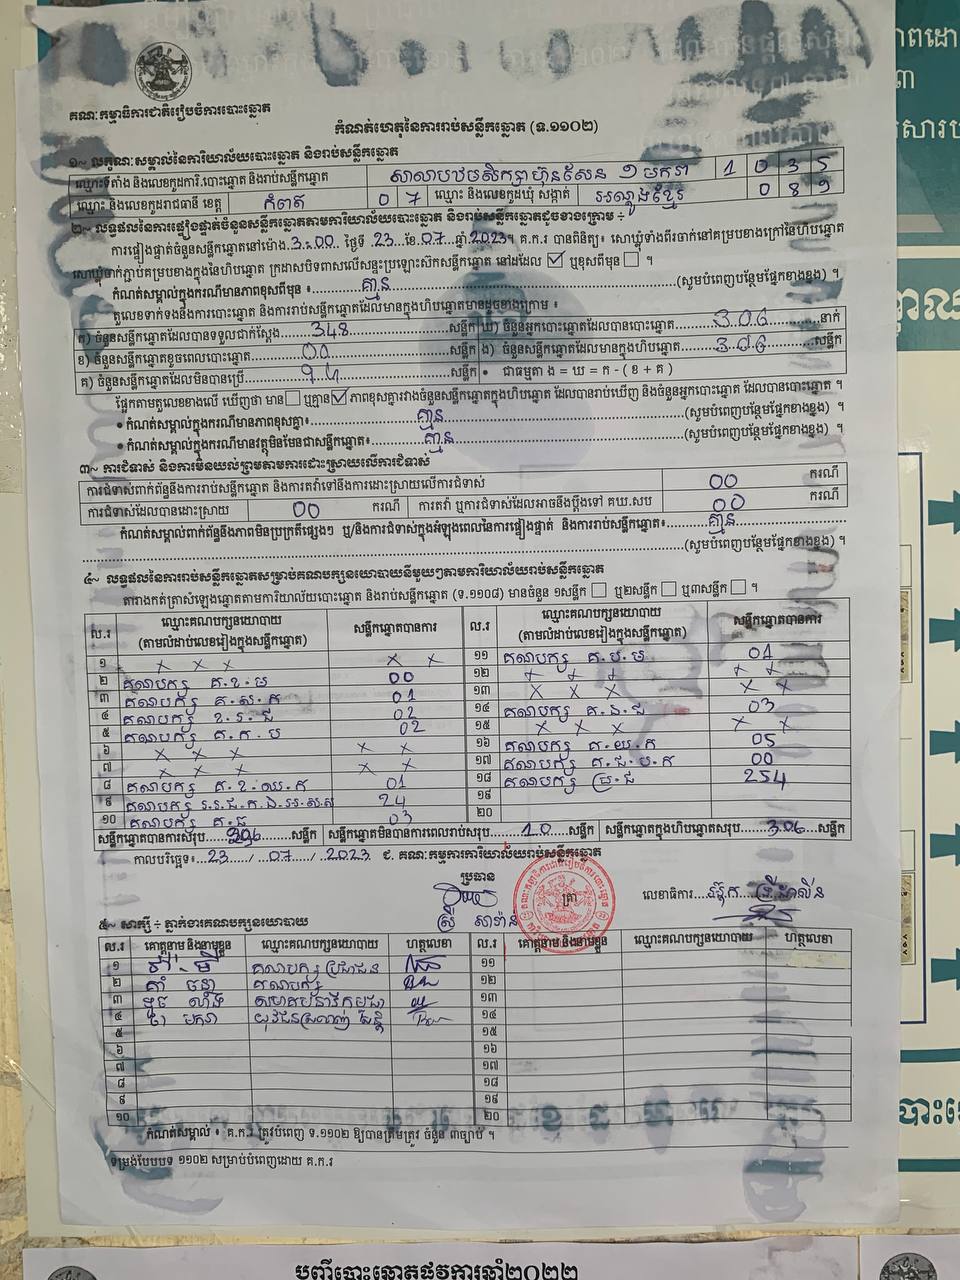 គណៈកម្មាធិការជាតិរៀបចំការបោះឆ្នោត
កំណត់ហេតុនៃការរាប់សន្លឹកឆ្នោត (ទ.១១០២)
១~ លក្ខណៈសម្គាល់នៃការិយាល័យបោះឆ្នោត និងរាប់សន្លឹកឆ្នោត
ឈ្មោះទីតាំង និងលេខកូដការិ.បោះឆ្នោត និងរាប់សន្លឹកឆ្នោត សាលាបឋមសិក្សាហ៊ុនសែន ១ មករា 1 0 3 5
ឈ្មោះ និងលេខកូដរាជធានី ខេត្ត កំពត 0 7 ឈ្មោះ និងលេខកូដឃុំ សង្កាត់ អណ្ដូងខ្មែរ 0 8 1
២~ លទ្ធផលនៃការផ្ទៀងផ្ទាត់ចំនួនសន្លឹកឆ្នោតតាមការិយាល័យបោះឆ្នោត និងរាប់សន្លឹកឆ្នោតដូចខាងក្រោម ÷
ការផ្ទៀងផ្ទាត់ចំនួនសន្លឹកឆ្នោតនៅម៉ោង 3:00 ថ្ងៃទី 23 ខែ 07 ឆ្នាំ 2023។ គ.ក.រ បានពិនិត្យ៖ សោឃ្លុំទាំងពីរចាក់នៅគម្របខាងក្រៅនៃហិបឆ្នោត
សោឃ្លុំចាក់ភ្ជាប់គម្របខាងក្នុងនៃហិបឆ្នោត ក្រដាសបិទពាសលើសន្ទះប្រឡោះស៊កសន្លឹកឆ្នោត នៅដដែល ☑ ឬខុសពីមុន ☐ ។
កំណត់សម្គាល់ក្នុងករណីមានភាពខុសពីមុន ៖ គ្មាន (សូមបំពេញបន្ថែមផ្នែកខាងខ្នង) ។
តួលេខទាក់ទងនឹងការបោះឆ្នោត និងការរាប់សន្លឹកឆ្នោតដែលមានក្នុងហិបឆ្នោតមានដូចខាងក្រោម ៖
ក) ចំនួនសន្លឹកឆ្នោតដែលបានទទួលជាក់ស្តែង 348 សន្លឹក ឃ) ចំនួនអ្នកបោះឆ្នោតដែលបានបោះឆ្នោត 306 នាក់
ខ) ចំនួនសន្លឹកឆ្នោតខូចពេលបោះឆ្នោត 00 សន្លឹក ង) ចំនួនសន្លឹកឆ្នោតដែលមានក្នុងហិបឆ្នោត 306 សន្លឹក
គ) ចំនួនសន្លឹកឆ្នោតដែលមិនបានប្រើ សន្លឹក • ជាធម្មតា ង = ឃ = ក - ( ខ + គ )
ផ្អែកតាមតួលេខខាងលើ ឃើញថា មាន ☐ ឬគ្មាន ☑ ភាពខុសគ្នារវាងចំនួនសន្លឹកឆ្នោតក្នុងហិបឆ្នោត ដែលបានរាប់ឃើញ និងចំនួនអ្នកបោះឆ្នោត ដែលបានបោះឆ្នោត ។
• កំណត់សម្គាល់ក្នុងករណីមានភាពខុសគ្នា៖ គ្មាន (សូមបំពេញបន្ថែមផ្នែកខាងខ្នង) ។
• កំណត់សម្គាល់ក្នុងករណីមានវត្ថុមិនមែនជាសន្លឹកឆ្នោត៖ គ្មាន (សូមបំពេញបន្ថែមផ្នែកខាងខ្នង) ។
៣~ ការជំទាស់ និងការមិនយល់ព្រមតាមការដោះស្រាយលើការជំទាស់
ការជំទាស់ពាក់ព័ន្ធនឹងការរាប់សន្លឹកឆ្នោត និងការតវ៉ាទៅនឹងការដោះស្រាយលើការជំទាស់ 00 ករណី
ការជំទាស់ដែលបានដោះស្រាយ 00 ករណី ការតវ៉ា ឬការជំទាស់ដែលអាចនឹងប្តឹងទៅ គឃ.សប 00 ករណី
កំណត់សម្គាល់ពាក់ព័ន្ធនឹងភាពមិនប្រក្រតីផ្សេងៗ ឬ/និងការជំទាស់ក្នុងអំឡុងពេលនៃការផ្ទៀងផ្ទាត់ និងការរាប់សន្លឹកឆ្នោត៖ គ្មាន
(សូមបំពេញបន្ថែមផ្នែកខាងខ្នង) ។
៤~ លទ្ធផលនៃការរាប់សន្លឹកឆ្នោតសម្រាប់គណបក្សនយោបាយនីមួយៗតាមការិយាល័យរាប់សន្លឹកឆ្នោត
តារាងកត់ត្រាសំឡេងឆ្នោតតាមការិយាល័យបោះឆ្នោត និងរាប់សន្លឹកឆ្នោត (ទ.១១០៨) មានចំនួន ១សន្លឹក ☐ ឬ២សន្លឹក ☐ ឬ៣សន្លឹក ☐ ។
ល.រ ឈ្មោះគណបក្សនយោបាយ (តាមលំដាប់លេខរៀងក្នុងសន្លឹកឆ្នោត) សន្លឹកឆ្នោតបានការ ល.រ ឈ្មោះគណបក្សនយោបាយ (តាមលំដាប់លេខរៀងក្នុងសន្លឹកឆ្នោត) សន្លឹកឆ្នោតបានការ
១ x x x x x ១១ គណបក្ស គ.ប.ម 01
២ គណបក្ស គ.ខ.ម 00 ១២ x x x x x
៣ គណបក្ស គ.ស.ក 01 ១៣ x x x x x
៤ គណបក្ស ខ.រ.ជ 02 ១៤ គណបក្ស គ.ង.ជ 03
៥ គណបក្ស គ.ក.ប 02 ១៥ x x x x x
៦ x x x x x ១៦ គណបក្ស គ.ឃ.ក 05
៧ x x x x x ១៧ គណបក្ស គ.ជ.ប.ក 00
៨ គណបក្ស គ.ខ.ឈ.ក 01 ១៨ គណបក្ស ប្រ.ជ 254
៩ គណបក្ស 24 ១៩
១០ គណបក្ស គ.ជ 03 ២០
សន្លឹកឆ្នោតបានការសរុប 296 សន្លឹក សន្លឹកឆ្នោតមិនបានការពេលរាប់សរុប 10 សន្លឹក សន្លឹកឆ្នោតក្នុងហិបឆ្នោតសរុប 306 សន្លឹក
កាលបរិច្ឆេទ៖ 23 / 07 / 2023 ជ. គណៈកម្មការការិយាល័យរាប់សន្លឹកឆ្នោត
ប្រធាន
ត្រា
លេខាធិការ
ស្រី សាវ៉ាន
៥~ សាក្សី ÷ ភ្នាក់ងារគណបក្សនយោបាយ
ល.រ គោត្តនាម និងនាមខ្លួន ឈ្មោះគណបក្សនយោបាយ ហត្ថលេខា ល.រ គោត្តនាម និងនាមខ្លួន ឈ្មោះគណបក្សនយោបាយ ហត្ថលេខា
១ គណបក្ស ប្រជាជន ១១
២ គណបក្ស ១២
៣ ១៣
៤ ១៤
៥ ១៥
៦ ១៦
៧ ១៧
៨ ១៨
៩ ១៩
១០ ២០
កំណត់សម្គាល់ ៖ គ.ក.រ ត្រូវបំពេញ ទ.១១០២ ឱ្យបានត្រឹមត្រូវ ចំនួន ៣ច្បាប់ ។
ទម្រង់បែបបទ ១១០២ សម្រាប់បំពេញដោយ គ.ក.រ
បញ្ជីបោះឆ្នោតផ្លូវការឆ្នាំ២០២២